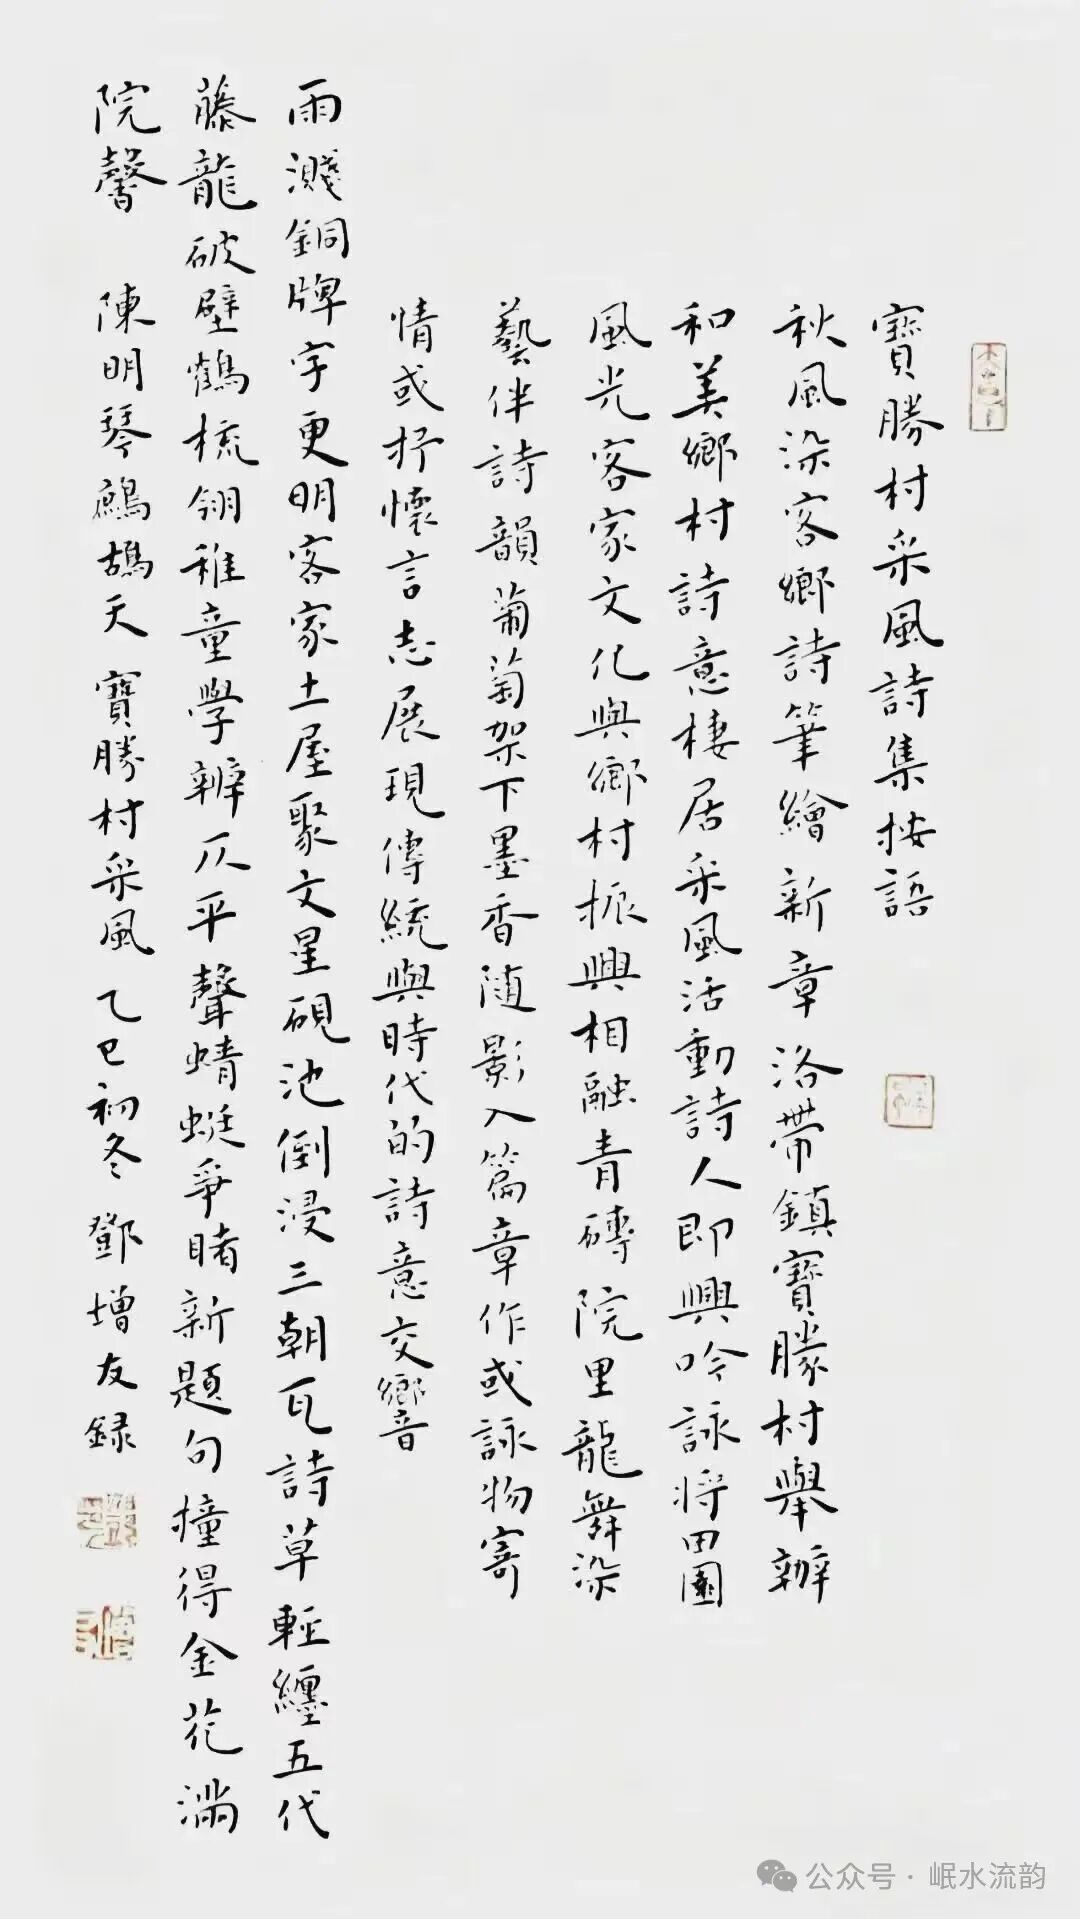 寶勝村采風詩集按語
秋風染客鄉詩筆繪新章洛帶鎮寶勝村舉辦
和美鄉村詩意棲居采風活動詩人即興吟詠將田園
風光客家文化與鄉村振興相融青磚院里龍舞染
藝伴詩韻葡萄架下墨香随影入篇章作或詠物寄
情或抒懷言志展現傳統與時代的詩意交響
雨濺銅牌字更明客家土屋聚文星硯池倒浸三朝瓦詩草輕纏五代
藤龍破壁鶴梳翎稚童學辨仄平聲蜻蜓爭睹新題句撞得金花滿
院馨 陳明琴鷓鴣天 寶勝村采風 乙巳初冬 鄧增友録
公众号·岷水流韵